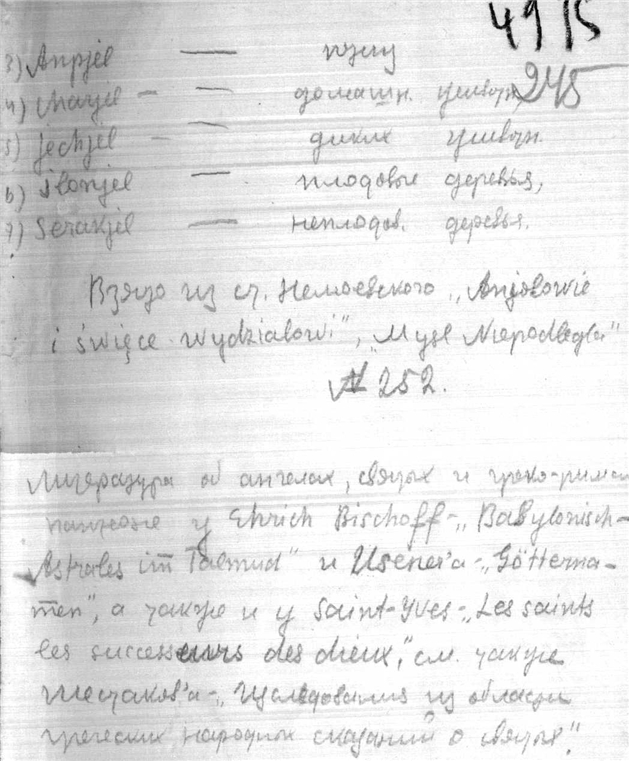 4915
245
3) Anpjel — птиц
4) Chayel — — домашн. животн.
5) Jechjel — — диких животн.
6) Ilonjel — плодовые деревья,
7) Serakjel — неплодов. деревья.
Взято из ст. Немоевского „Aniołowie
i święce wydziałowi", „Myśl Niepodległa"
№ 252.
Литература об ангелах, святых и греко-римск
пантеоне у Ehrich Bischoff - „Babylonisch-
Astrales im Talmud" и Usener'а - „Götterna-
men", а также и у Saint-Yves - „Les saints
les successeurs des dieux," см. также
Шестаков'а - „Исследования из области
греческих народных сказаний о святых".